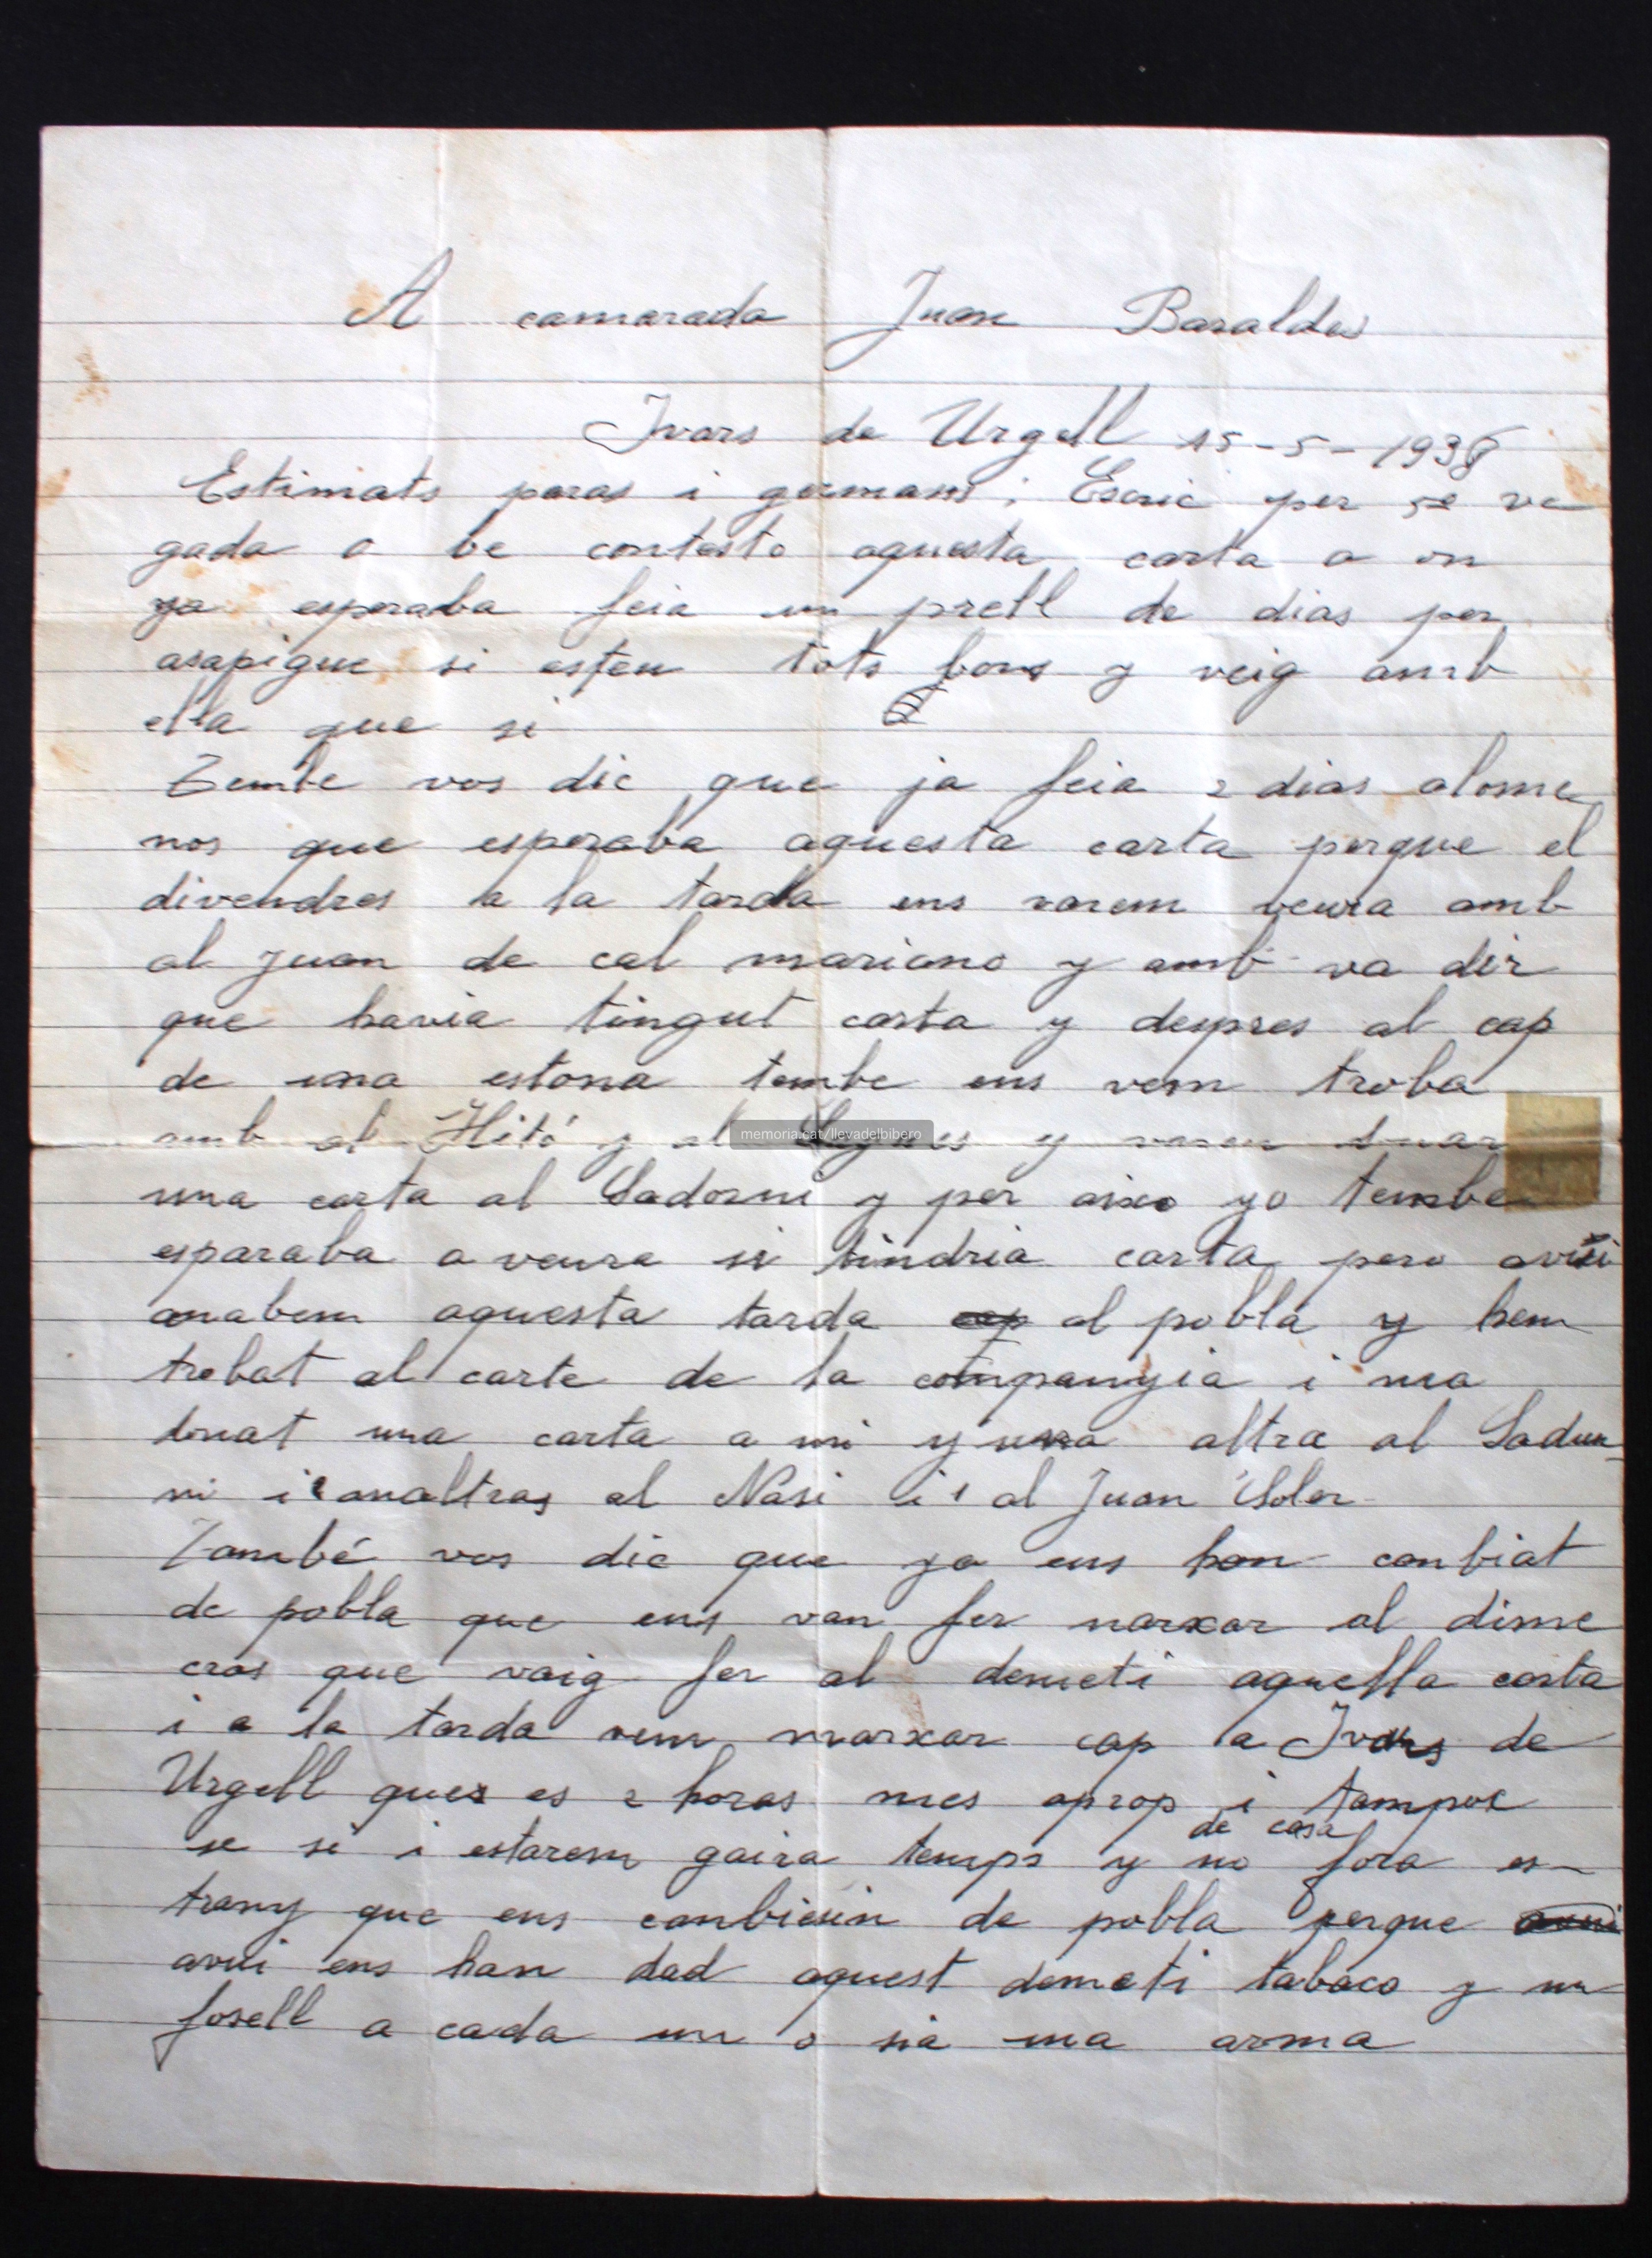 A camarada Juan Baraldes
Ivars de Urgell 15-5-1938
Estimats paras i germans; Escric per 5e ve
gada o be contesto aquesta carta a on
ya esperaba feia un prell de dias per
asapigue si esteu tots bons y veig amb
ella que si
Tembe vos dic que ja feia 2 dias alome
nos que esperaba aquesta carta perque el
divendres a la tarda ens varem veura amb
al Juan de cal mariano y amb va dir
que havia tingut carta y despres al cap
de una estona tembe ens vem troba
amb al Hitó y al y varen duar
memoria.cat/llevadelbibero
una carta al Sadorni y per aixo yo tembe
esparaba a veura si tindria carta pero avui
anabem aquesta tarda cap al pobla y hem
trobat al carte de la companyia i ma
donat una carta a mi y una altra al Sadur
ni i analtras al Nasi i al Juan Soler
També vos dic que ja ens han canbiat
de pobla que ens van fer marxar al dime
cras que vaig fer al demeti aquella carta
i a la tarda vem marxar cap a Ivars de
Urgell ques es 2 horas mes aprop i tampoc
de casa
se si i estarem gaira temps y no fora es-
trany que ens canbiesin de pobla perque avui
avui ens han dad aquest demeti tabaco y un
fosell a cada un o sia una arma